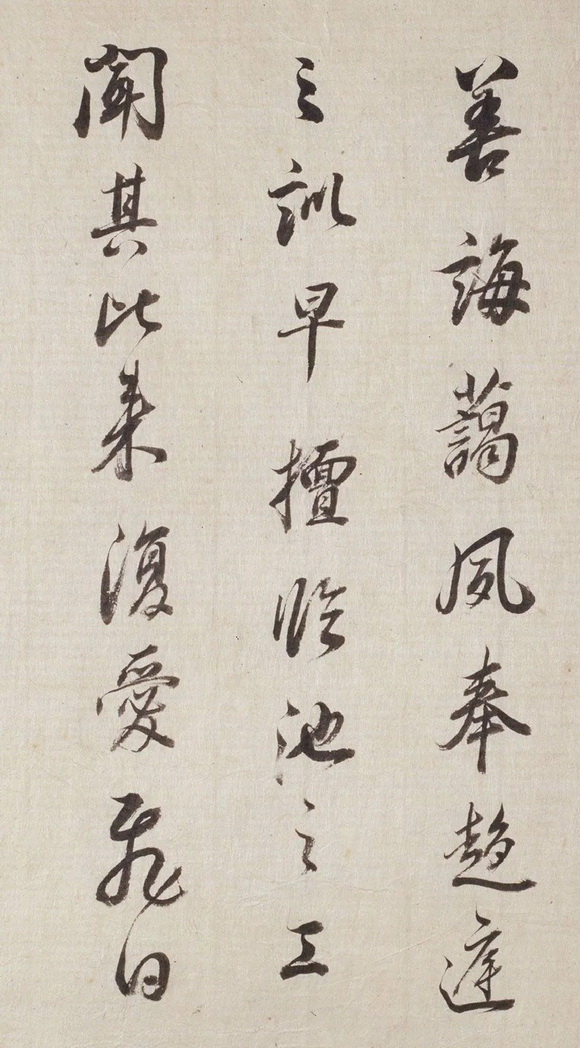 善誨藹夙奉趨庭
之訓早擅臨池之工
聞其比來復愛飛白